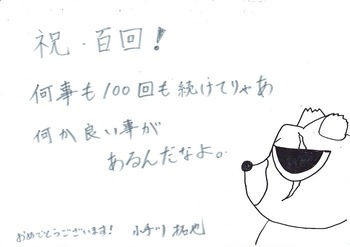 祝・百回!
何事も100回も続けてりゃあ
何か良い事が
あるんだなよ。
おめでとうございます! 小手川 拓也